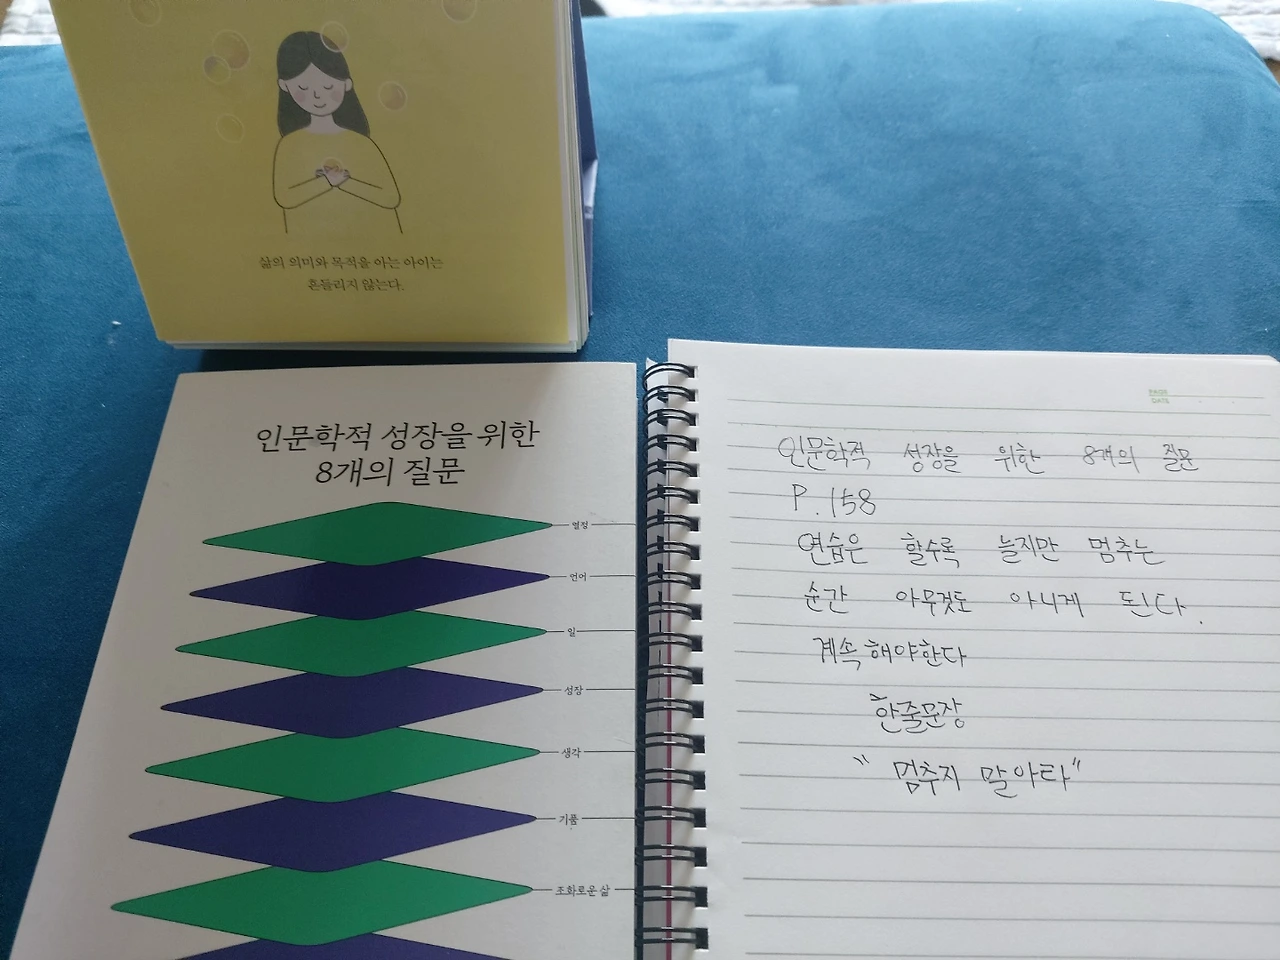 삶의 의미와 목적을 아는 아이는
흔들리지 않는다.
인문학적 성장을 위한
8개의 질문
열정
언어
일
성장
생각
기품
조화로운 삶
PAGE
DATE
인문학적 성장을 위한 8개의 질문
P.158
연습은 할수록 늘지만 멈추는
순간 아무것도 아니게 된다.
계속 해야한다
한줄문장
"멈추지 말아라"